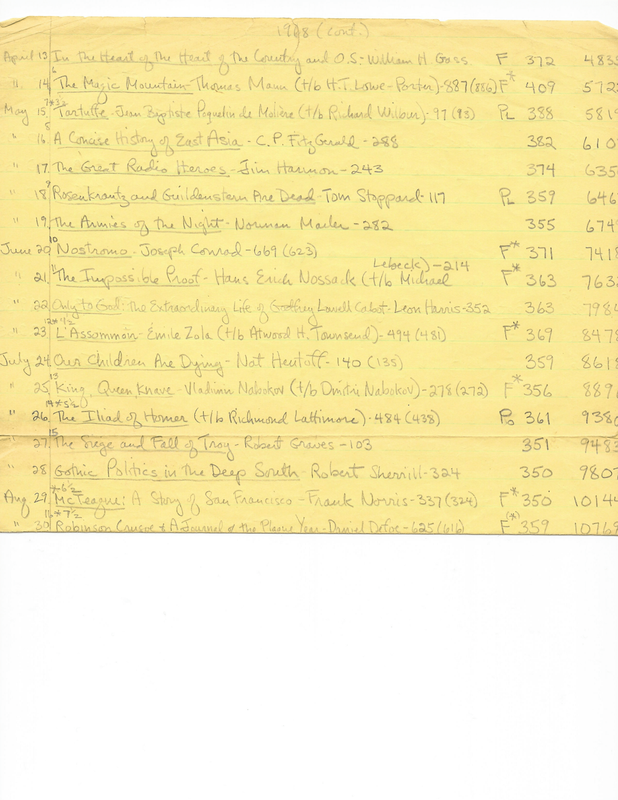 1968 (cont.)
April 13 In the Heart of the Heart of the Country and O.S. - William H. Gass F 372 4835
" 14 The Magic Mountain - Thomas Mann (t/b H.T. Lowe-Porter) - 887 (886) F* 409 572
May 15 Tartuffe - Jean Baptiste Poquelin de Molière (t/b Richard Wilbur) - 97 (95) PL 388 581
" 16 A Concise History of East Asia - C.P. FitzGerald - 288 382 610
" 17 The Great Radio Heroes - Jim Harmon - 243 374 635
" 18 Rosenkrantz and Guildenstern Are Dead - Tom Stoppard - 117 PL 359 646
" 19 The Armies of the Night - Norman Mailer - 282 355 674
June 20 Nostromo - Joseph Conrad - 669 (623) F* 371 741
Lebeck) - 214
" 21 The Impossible Proof - Hans Erich Nossack (t/b Michael F* 363 763
" 22 Only to God: The Extraordinary Life of Godfrey Lowell Cabot - Leon Harris - 352 363 798
" 23 L'Assommoir - Emile Zola (t/b Atwood H. Townsend) - 494 (481) F* 369 847
July 24 Our Children Are Dying - Nat Hentoff - 140 (138) 359 861
" 25 King, Queen Knave - Vladimir Nabokov (t/b Dmitri Nabokov) - 278 (272) F* 356 889
" 26 The Iliad of Homer (t/b Richmond Lattimore) - 484 (438) Po 361 938
27 The Siege and Fall of Troy - Robert Graves - 103 351 9483
" 28 Gothic Politics in the Deep South - Robert Sherrill - 324 350 9807
Aug 29 McTeague: A Story of San Francisco - Frank Norris - 337 (324) F* 350 10144
" 30 Robinson Crusoe & A Journal of the Plague Year - Daniel Defoe - 625 (616) F(*) 359 10769